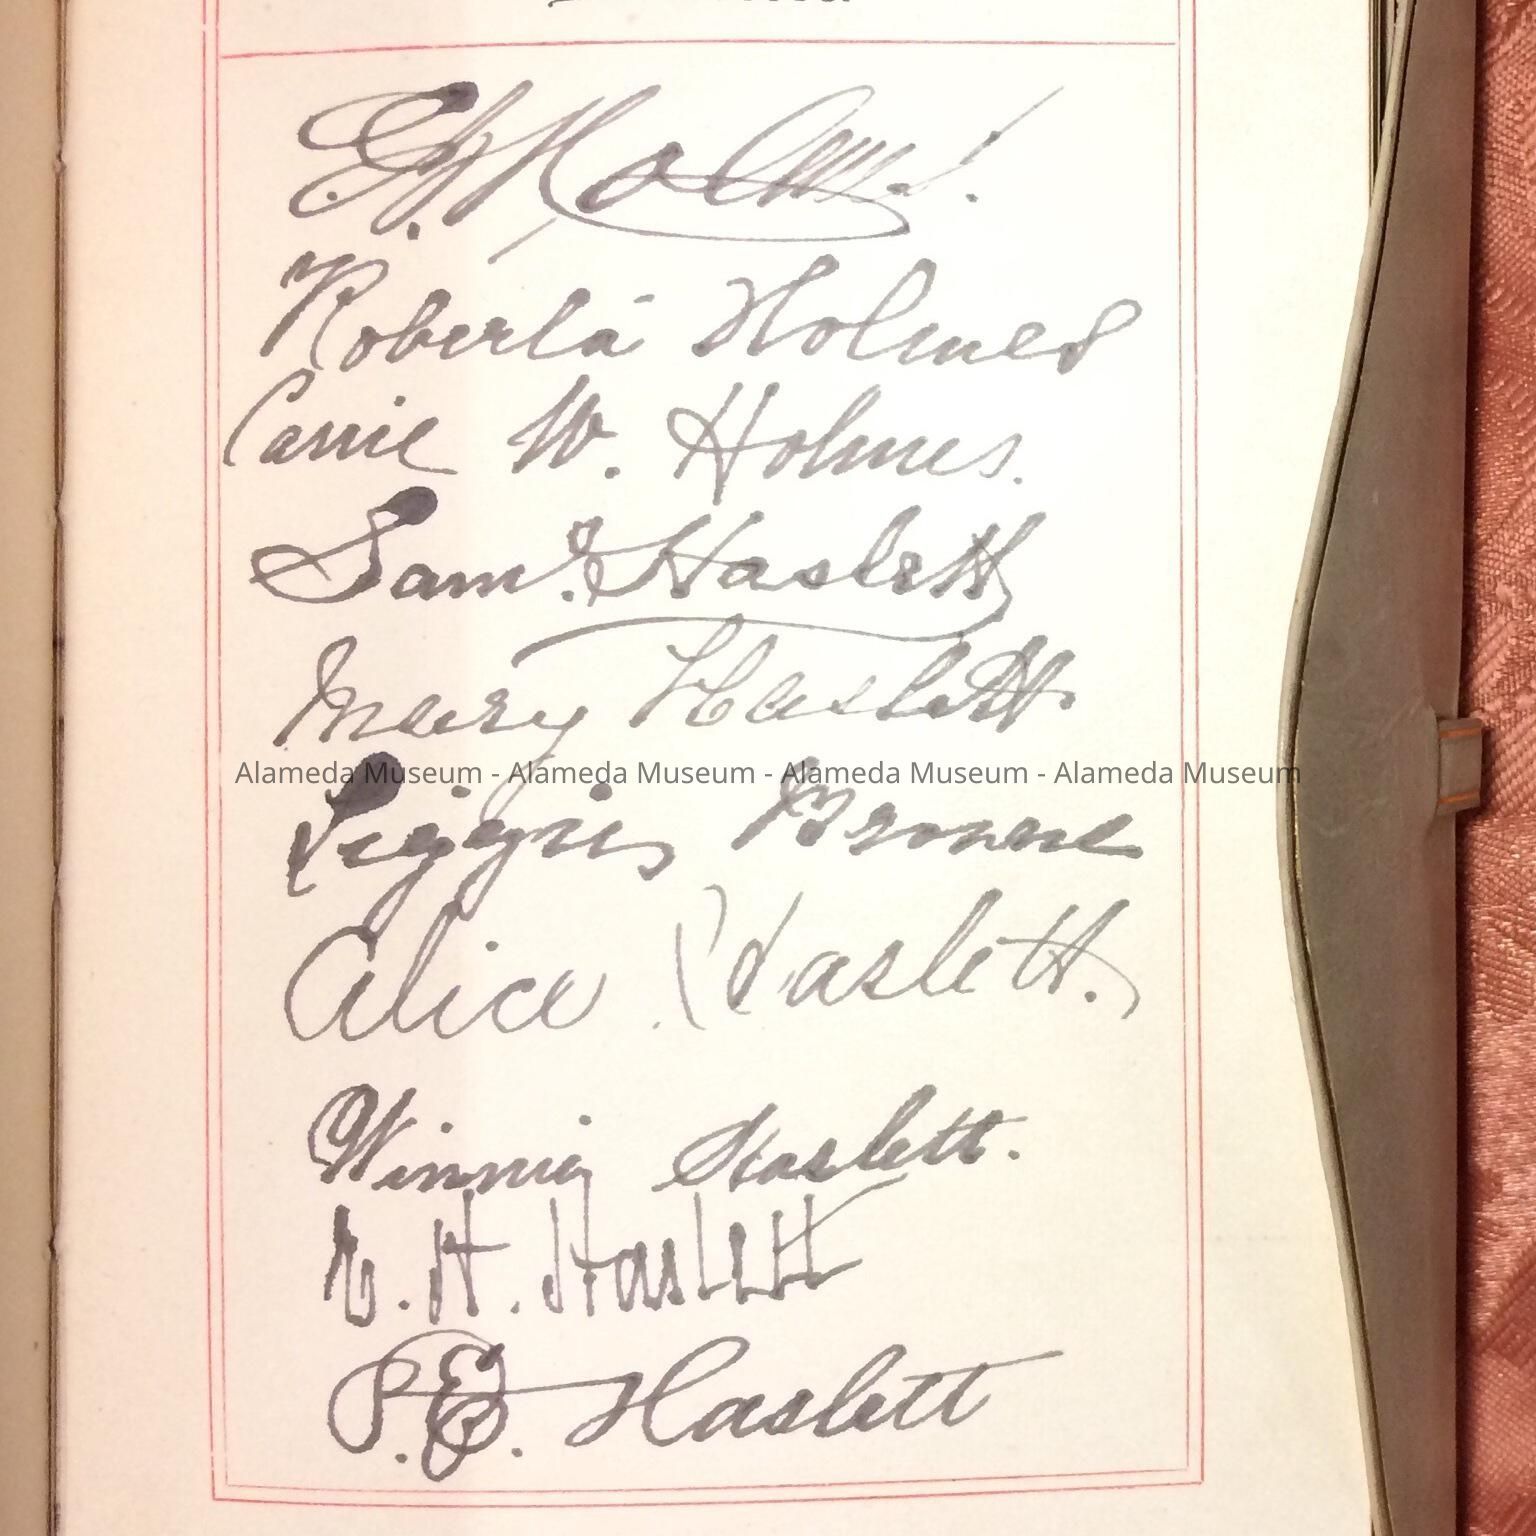 Holmes.
Roberta Holmes
Carrie W. Holmes.
Saml. Haslett
Mary Haslett.
Alameda Museum - Alameda Museum - Alameda Museum - Alameda Museum
Browne
Alice Haslett.
Winnie Haslett.
H. Haslett
P. E. Haslett